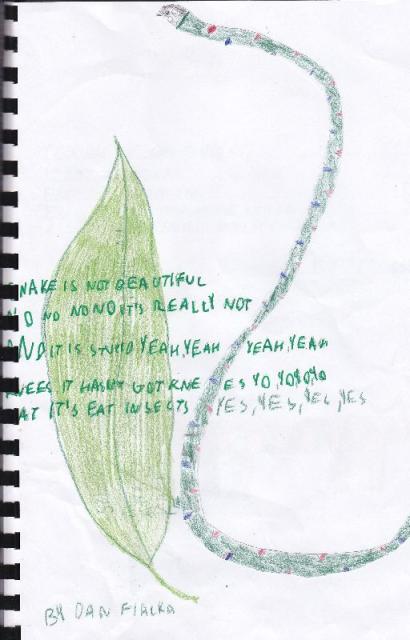 SNAKE IS NOT BEAUTIFUL
NO NO NO NO IT'S REALLY NOT
AND IT IS STUPID YEAH, YEAH YEAH, YEAH
IT HASN'T GOT KNEES YO, YO YO YO
EAT IT'S EAT INSECTS YES, YES, YES, YES
BY DAN FIALKA